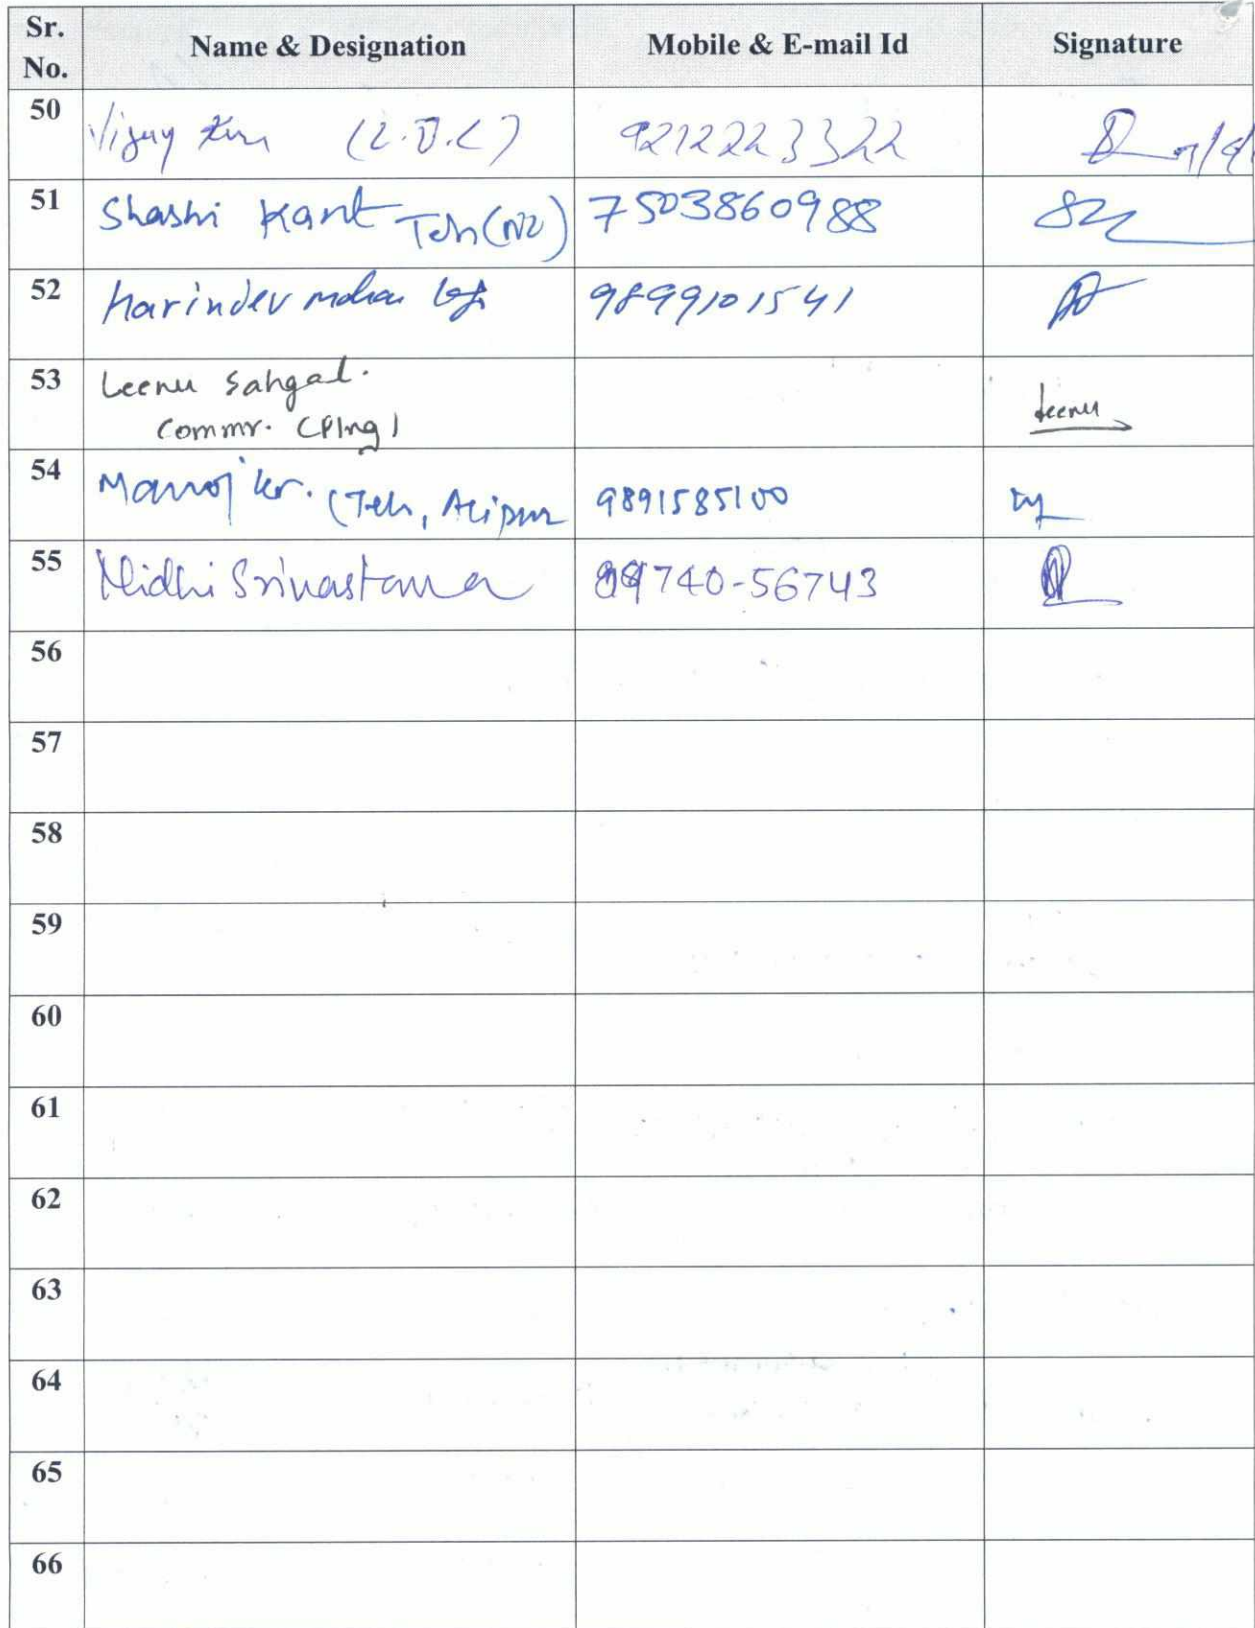 Sr. No. Name & Designation Mobile & E-mail Id Signature
50 Vijay Kum (L.D.C) 9212223322
51 Shashi Kant Teh (NZ) 7503860988
52 Harinder mohan 9899101541
53 Leenu Sahgal. Leenu
Commr. (Plng)
54 Manoj kr. (Teh, Alipur 9891585100
55 Nidhi Srivastava 740-56743
56
57
58
59
60
61
62
63
64
65
66